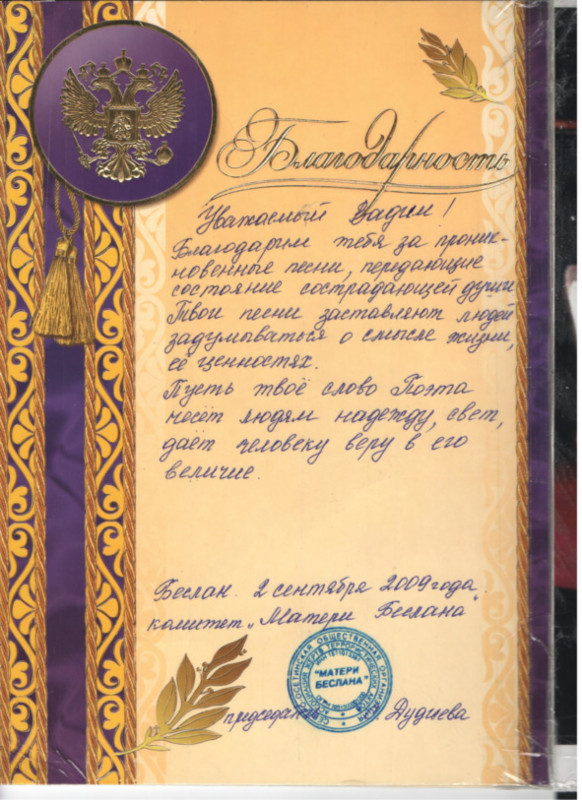 Благодарность
Уважаемый Вадим!
Благодарим тебя за проник-
новенные песни, передающие
состояние сострадающей души
Твои песни заставляют людей
задумываться о смысле жизни,
её ценностях.
Пусть твоё слово Поэта
несёт людям надежду, свет,
даёт человеку веру в его
величие.
Беслан. 2 сентября 2009 года
комитет „Матери Беслана"
"МАТЕРИ
БЕСЛАНА"
Дудиева